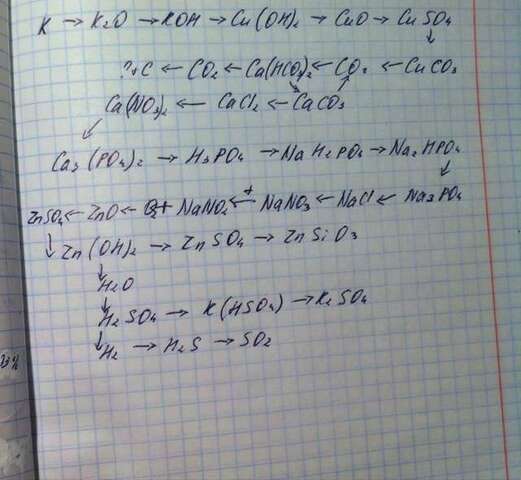 K → K₂O → KOH → Cu(OH)₂ → CuO → CuSO₄
↓
?+C ← CO₂ ← Ca(HCO₃)₂ ← CO₂ ← CuCO₃
Ca(NO₃)₂ ← CaCl₂ ← CaCO₃
Ca₃(PO₄)₂ → H₃PO₄ → NaH₂PO₄ → Na₂HPO₄
ZnSO₄ ← ZnO ← O₂+ NaNO₂ ← NaNO₃ ← NaCl ← Na₃PO₄
↓ Zn(OH)₂ → ZnSO₄ → ZnSiO₃
↓
H₂O
↓
H₂SO₄ → K(HSO₄) → K₂SO₄
↓ H₂ → H₂S → SO₂